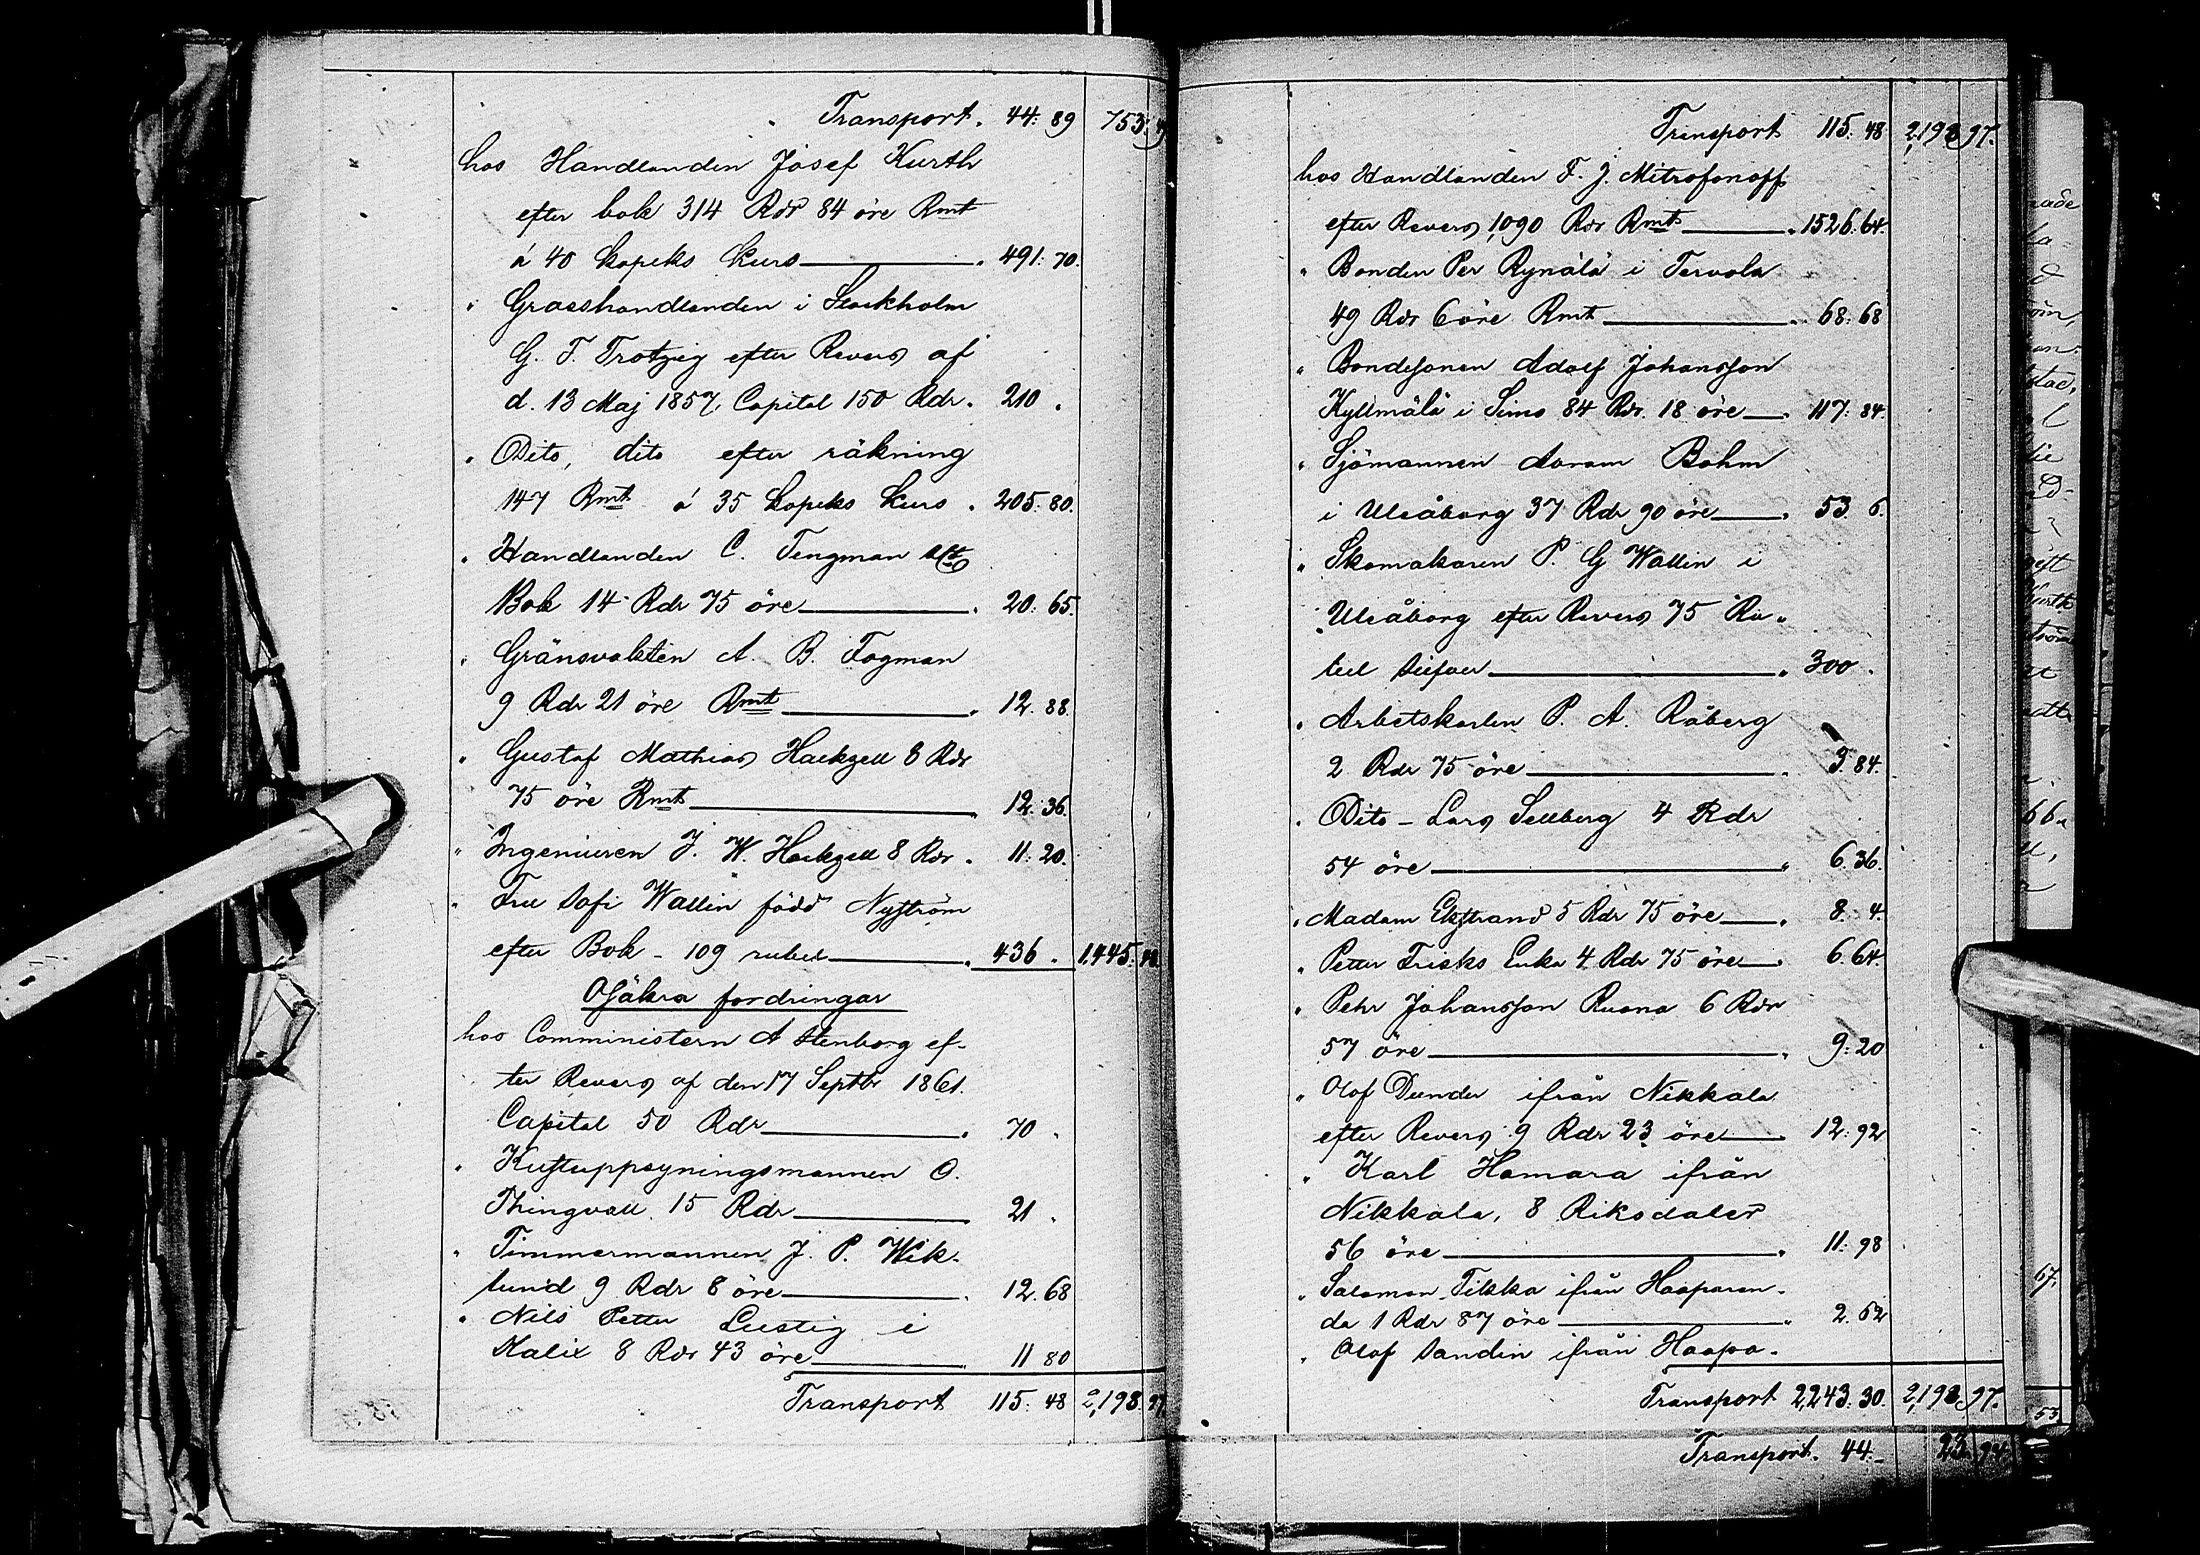 Transport. 44: 89 753: 49
hos Handlanden Josef Kurth
efter bok 314 Rdr 84 öre Rmt
á 40 kopeks kurs . 491: 70.
" Grosshandlanden i Stockholm
G. F. Trotzig efter Revers af
d. 13 Maj 1857, Capital 150 Rdr. 210 .
" Dito, dito efter räkning
147 Rmt á 35 kopeks kurs . 205: 80.
" Handlanden C. Tengman
Bok 14 Rdr 75 öre . 20: 65
" Gränsvakten A. B. Fogman
9 Rdr 21 öre Rmt . 12. 88.
" Gustaf Mathias Hackzell 8 Rdr
75 öre Rmt 12: 36.
" Ingeniuren J. W. Hackzell 8 Rdr . 11: 20.
" Fru Sofi Wallin född Nyström
efter Bok - 109 rubel . 436 . 1,445: 48
Osäkra fordringar
hos Comministern A Stenborg ef-
ter Revers af den 17 Septbr 1861.
Capital 50 Rdr . 70 .
" Kustuppsyningsmannen O.
Thingvall 15 Rdr 21 .
" Timmermannen J. P. Wik-
lund 9 Rdr 8 öre . 12. 68
" Nils Petter Lustig i
Kalix 8 Rdr 43 öre 11 80
Transport 115: 48 2,198. 97
Transport 115: 48 2,198 97.
hos Handlanden F. J. Mitrofonoff
efter Revers 1,090 Rdr Rmt . 1526. 64.
" Bonden Per Rynälä i Tervola
49 Rdr 6 öre Rmt . 68: 68
" Bondesonen Adolf Johansson
Kyllmälä i Simo 84 Rdr. 18 öre . 117: 84.
" Sjömannen Aoram Bohm
i Uleåborg 37 Rdr 90 öre . 53. 6.
" Skomakaren P. G Wallin i
Uleåborg efter Revers 75 Ru-
bel silfver . 300 .
" Arbetskarlen P. A. Råberg
2 Rdr 75 öre . 3. 84.
" Dito - Lars Sellberg 4 Rdr
54 öre . 6. 36.
" Madam Ekstrand 5 Rdr 75 öre . 8. 4.
" Petter Frisks Enka 4 Rdr 75 öre . 6. 64.
" Pehr Johansson Ruona 6 Rdr
57 öre . 9: 20
" Olof Dunder ifrån Nikkala
efter Revers 9 Rdr 23 öre . 12: 92
" Karl Hamara ifrån
Nikkala, 8 Riksdaler
56 öre . 11: 98
" Salomon Tikka ifrån Haaparan-
da 1 Rdr 87 öre . 2. 62
" Olof Sandin ifrån Haapa-
Transport 2,243: 30. 2,198 97.
Transport. 44.-